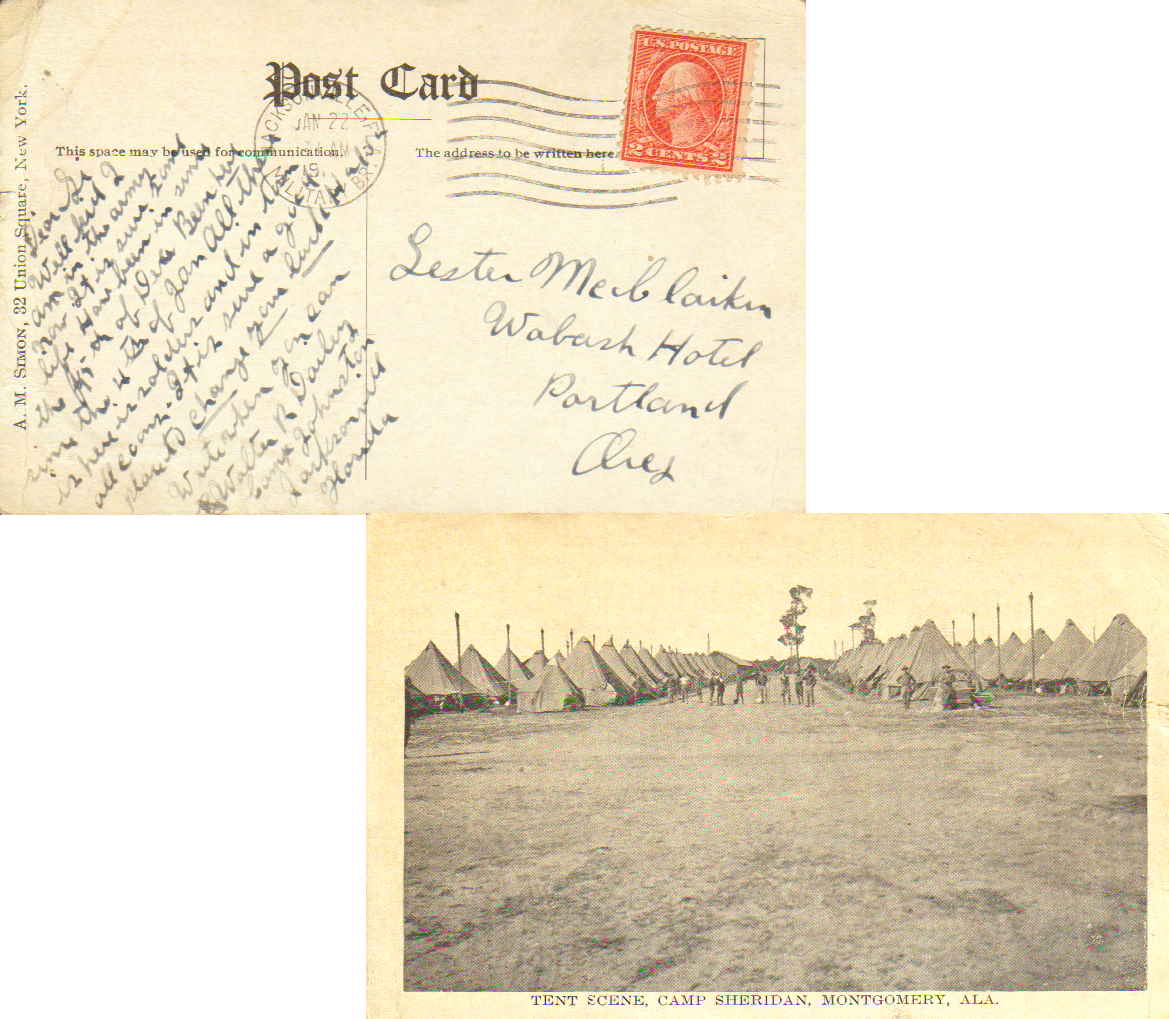 Post Card
U.S. POSTAGE
2 CENTS 2
JACKSONVILLE, FLA.
JAN 22
AM
MILITARY BR.
This space may be used for communication.
The address to be written here.
A. M. SIMON, 32 Union Square, New York.
Dear
Well but I
am in the army
now It is sure some
life Have been in since
the 15th of Dec Been here
since the 4th of Jan All there
is here is soldiers and in town
all coons. It is sure a good
place to change your luck
Write when you can
Walter R Dailey
Camp Johnston
Jacksonville
Florida
Lester
Wabash Hotel
Portland
Oreg
TENT SCENE, CAMP SHERIDAN, MONTGOMERY, ALA.